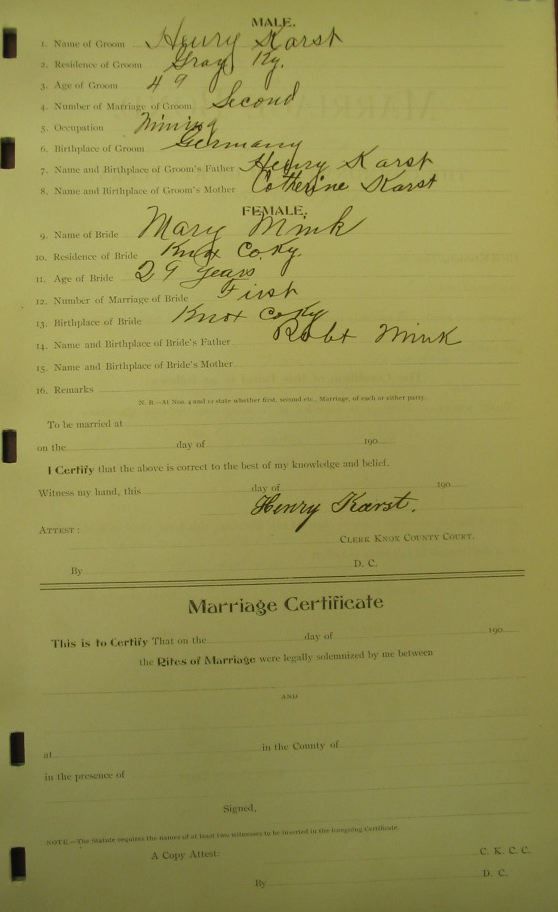 MALE.
1. Name of Groom Henry Karst
2. Residence of Groom Gray, Ky.
3. Age of Groom 49
4. Number of Marriage of Groom Second
5. Occupation Mining
6. Birthplace of Groom Germany
7. Name and Birthplace of Groom's Father Henry Karst
8. Name and Birthplace of Groom's Mother Catherine Karst
FEMALE.
9. Name of Bride Mary Mink
10. Residence of Bride Knox Co. Ky.
11. Age of Bride 29 years
12. Number of Marriage of Bride First
13. Birthplace of Bride Knox Co Ky
14. Name and Birthplace of Bride's Father Robt Mink
15. Name and Birthplace of Bride's Mother
16. Remarks
N. B.—At Nos. 4 and 12 state whether first, second etc., Marriage, of each or either party.
To be married at
on the day of 190
I Certify that the above is correct to the best of my knowledge and belief.
Witness my hand, this day of 190
Henry Karst.
ATTEST:
CLERK KNOX COUNTY COURT.
By D. C.
Marriage Certificate
This is to Certify That on the day of 190
the Rites of Marriage were legally solemnized by me between
AND
at in the County of
in the presence of
Signed,
NOTE.—The Statute requires the names of at least two witnesses to be inserted in the foregoing Certificate.
A Copy Attest: C. K. C. C.
By D. C.